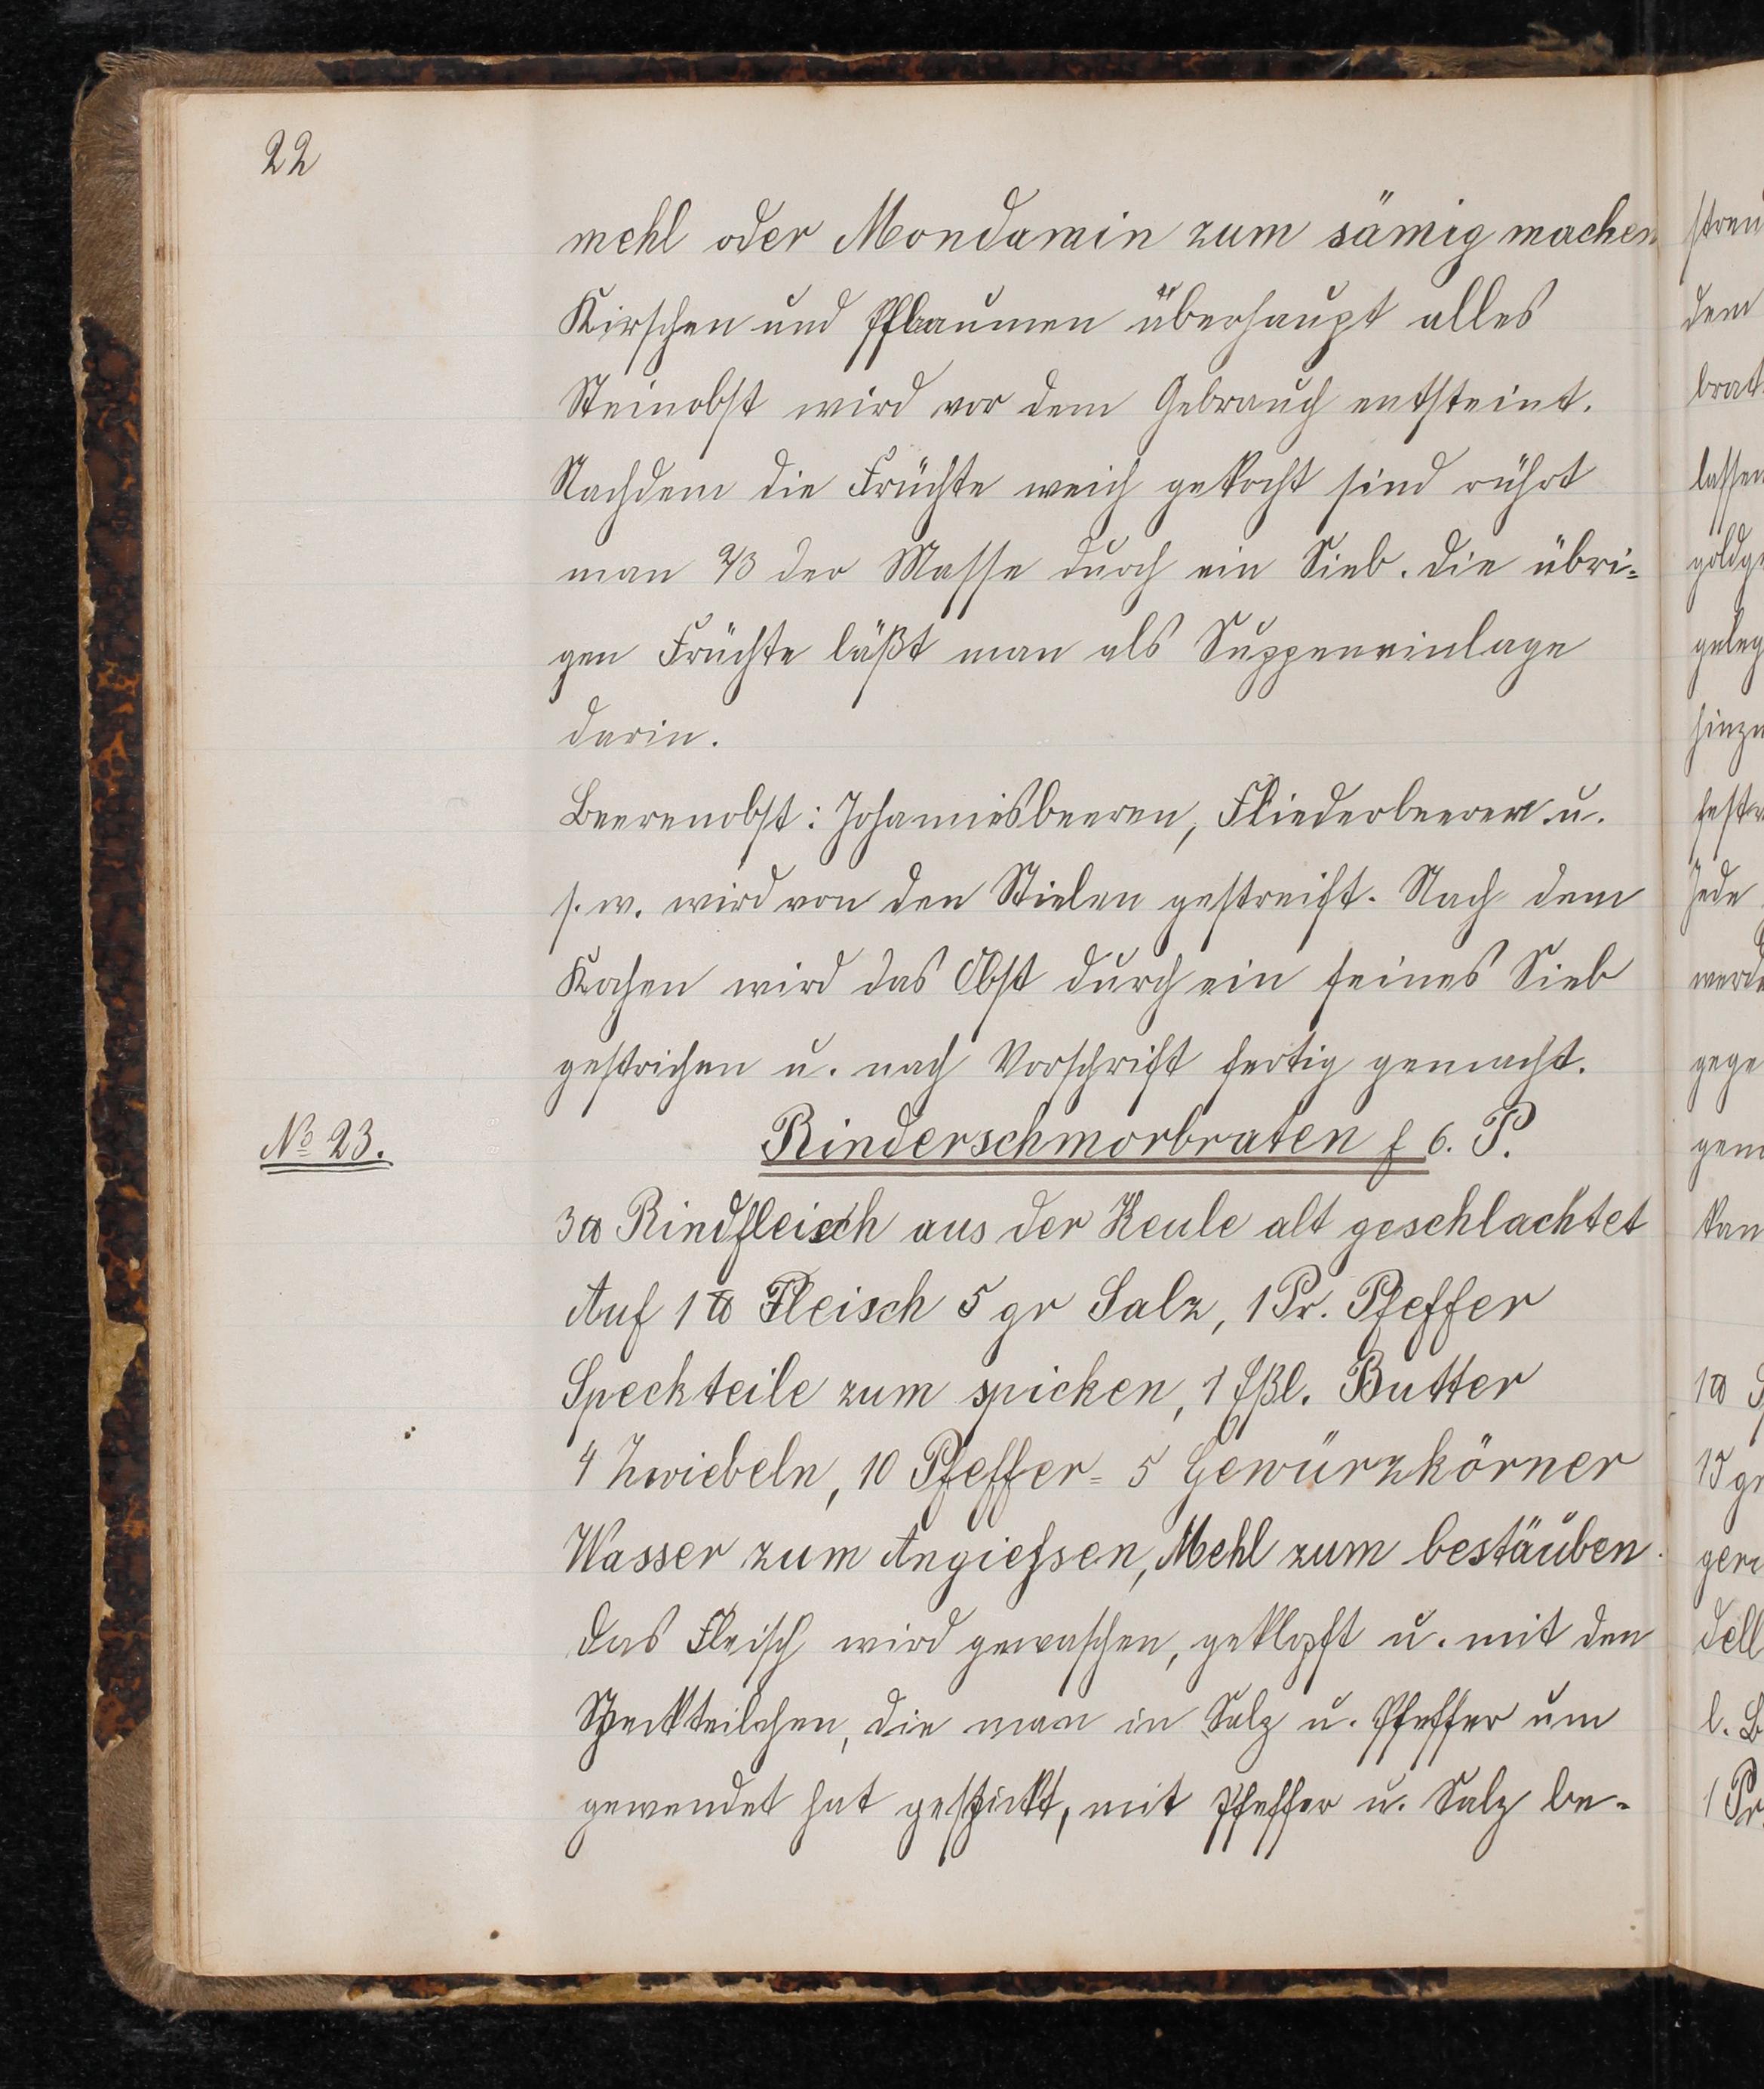 22
mehl oder Mondamin zum sämig machen
Kirschen und Pflaumen überhaupt alles
Steinobst wird vor dem Gebrauch entsteint.
Nachdem die Früchte weich gekocht sind rührt
man 2/3 der Masse durch ein Sieb. Die übri=
gen Früchte läßt man als Suppeneinlage
darin.
Beerenobst: Johannisbeeren, Fliederbeeren u.
s. w. wird von den Stielen gestreift. Nach dem
Kochen wird das Obst durch ein feines Sieb
gestrichen u. nach Vorschrift fertig gemacht.
No 23. Rinderschmorbraten f 6. P.
3 ℔ Rindfleisch aus der Keule alt geschlachtet
Auf 1 ℔ Fleisch 5 gr Salz, 1 Pr. Pfeffer
Speckteile zum spicken, 1 Eßl. Butter
4 Zwiebeln, 10 Pfeffer= 5 Gewürzkörner
Wasser zum Angießsen, Mehl zum bestäuben.
Das Fleisch wird gewaschen, geklopft u. mit den
Speckteilchen, die man in Salz u. Pfeffer um
gewendet hat gespickt, mit Pfeffer u. Salz be-
streu
dem
brat
lassen
goldge
geleg
hinzu
fest
Jede
werde
gege
gem
kan
1 ℔ S
15 gr
geri
Sell
l. B
1 Pr.